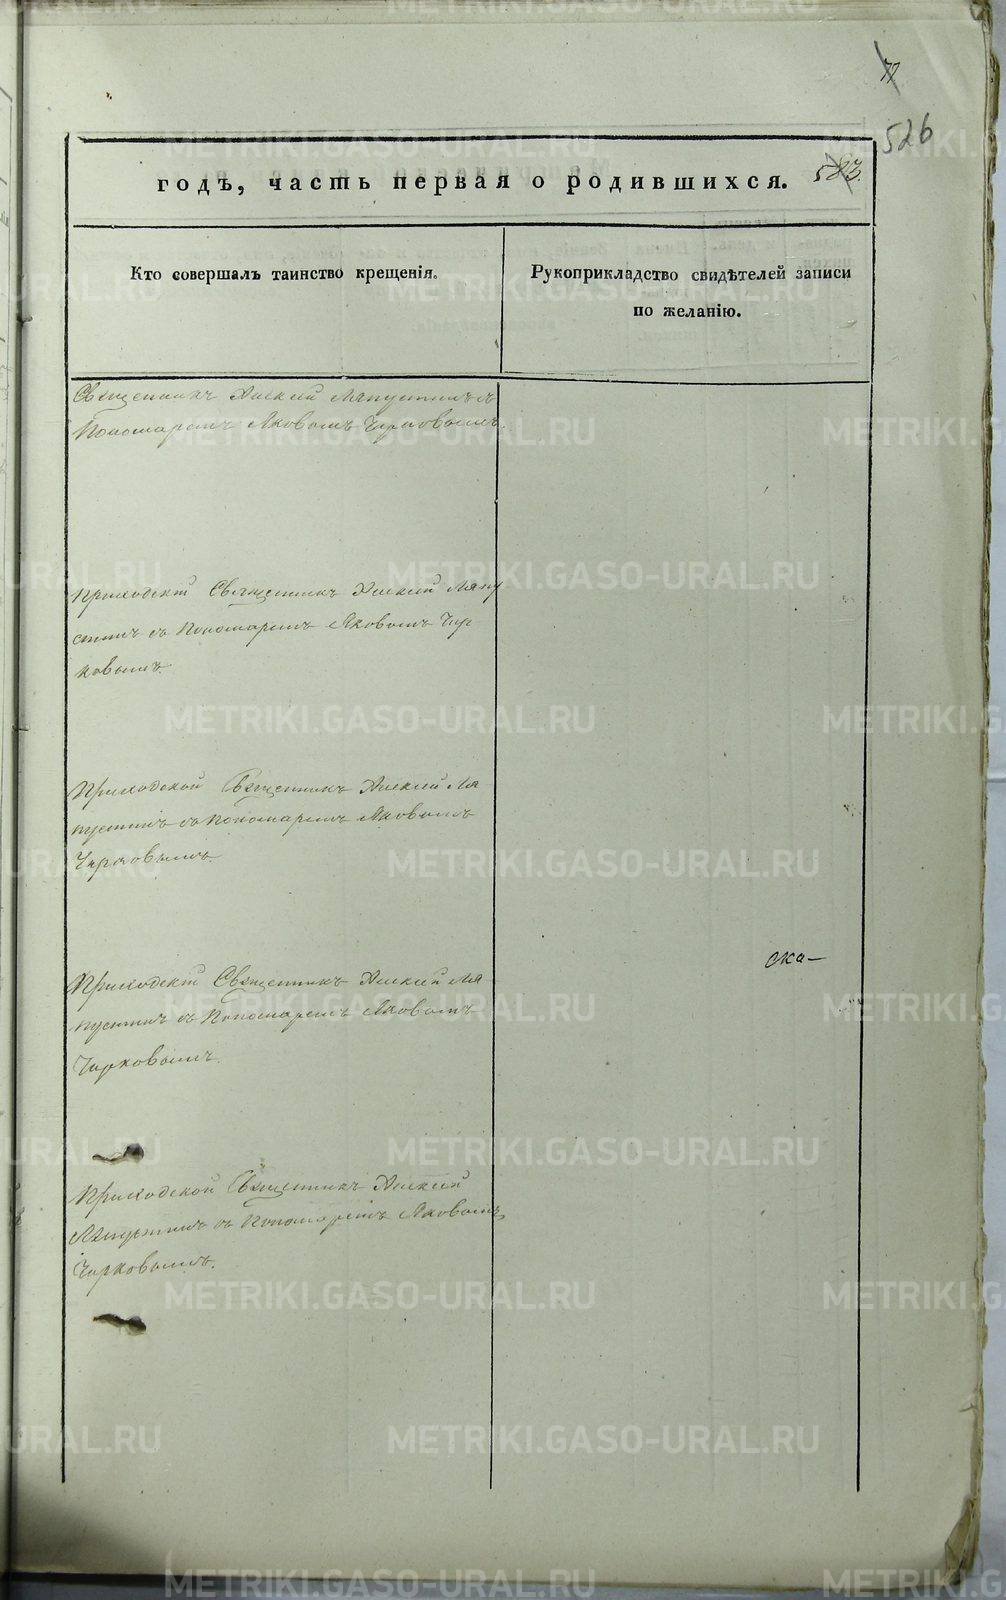 77
526
годъ, часть первая о родившихся. 583.
Кто совершалъ таинство крещенія.
Рукоприкладство свидѣтелей записи
по желанію.
Священникъ Алексій Ляпустинъ съ
Пономаремъ Яковомъ Чирковымъ.
Приходскій Священникъ Алексій Ляпу
стинъ съ Пономаремъ Яковомъ Чир
ковымъ.
Приходской Священникъ Алексій Ля
пустинъ съ Пономаремъ Яковомъ
Чирковымъ.
ска-
Приходскій Священникъ Алексій Ля
пустинъ съ Пономаремъ Яковомъ
Чирковымъ.
Приходской Священникъ Алексій
Ляпустинъ съ Пономаремъ Яковомъ
Чирковымъ.
METRIKI.GASO-URAL.RU